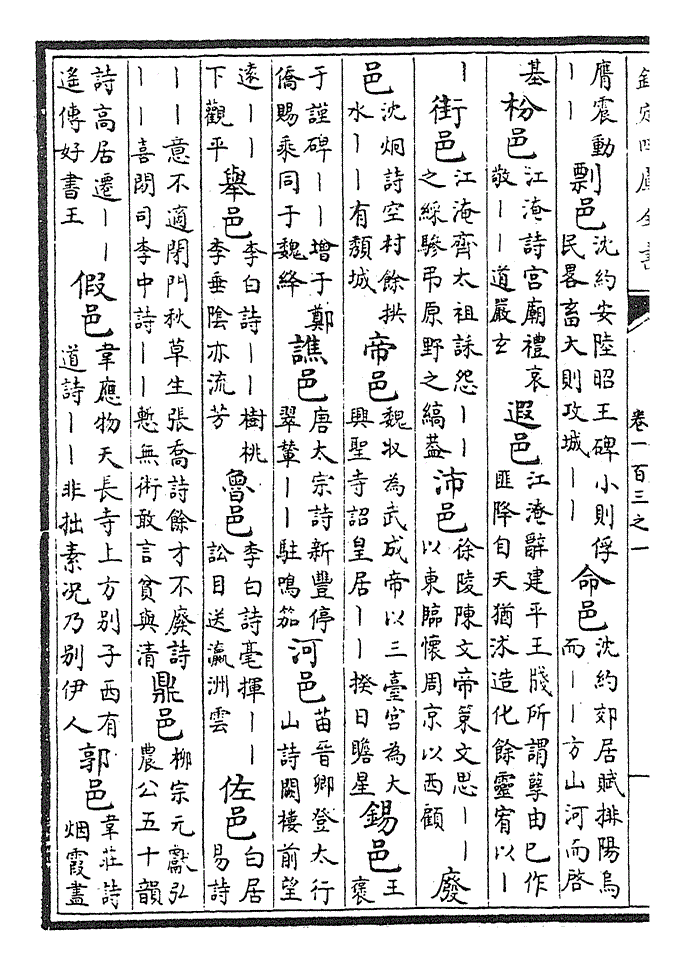 欽定四庫全書
卷一百三之一
膺震動｜｜剽邑沈約安陸昭王碑小則俘民畧畜大則攻城｜｜命邑沈約郊居賦排陽烏而｜｜方山河而啓
基枌邑江淹詩宫廟禮哀敬｜｜道嚴玄遐邑江淹辭建平王牋所謂孽由已作匪降自天猶沐造化餘靈宥以｜
｜街邑江淹齊太祖誄怨｜｜之綵驂弔原野之縞蓋沛邑徐陵陳文帝策文思｜｜以東臨懷周京以西顧廢
邑沈炯詩空村餘拱水｜｜有頽城帝邑魏收為武成帝以三臺宫為大興聖寺詔皇居｜｜揆日瞻星錫邑王褒
于謹碑｜｜增于鄭僑賜乘同于魏絳譙邑唐太宗詩新豐停翠輦｜｜駐鳴笳河邑苗晉卿登太行山詩闕樓前望
遠｜｜下觀平舉邑李白詩｜｜樹桃李垂陰亦流芳魯邑李白詩毫揮｜｜訟目送瀛洲雲佐邑白居易詩
｜｜意不適閉門秋草生張喬詩餘才不廢詩｜｜喜閉司李中詩｜｜慙無術敢言貧與清鼎邑柳宗元獻弘農公五十韻
詩高居遷｜｜遙傳好書王假邑韋應物天長寺上方别子西有道詩｜｜非拙素況乃别伊人郭邑韋莊詩烟霞盡